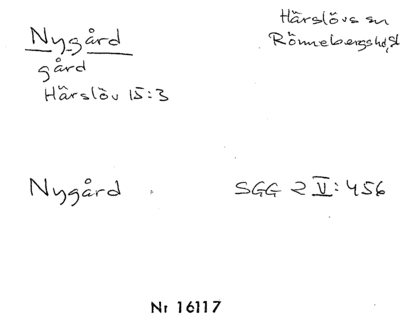 Nygård
gård
Härslöv 15:3
Härslövs sn
Rönnebergs hd, Sk
Nygård
SGG 2 V: 456
Nr 16117